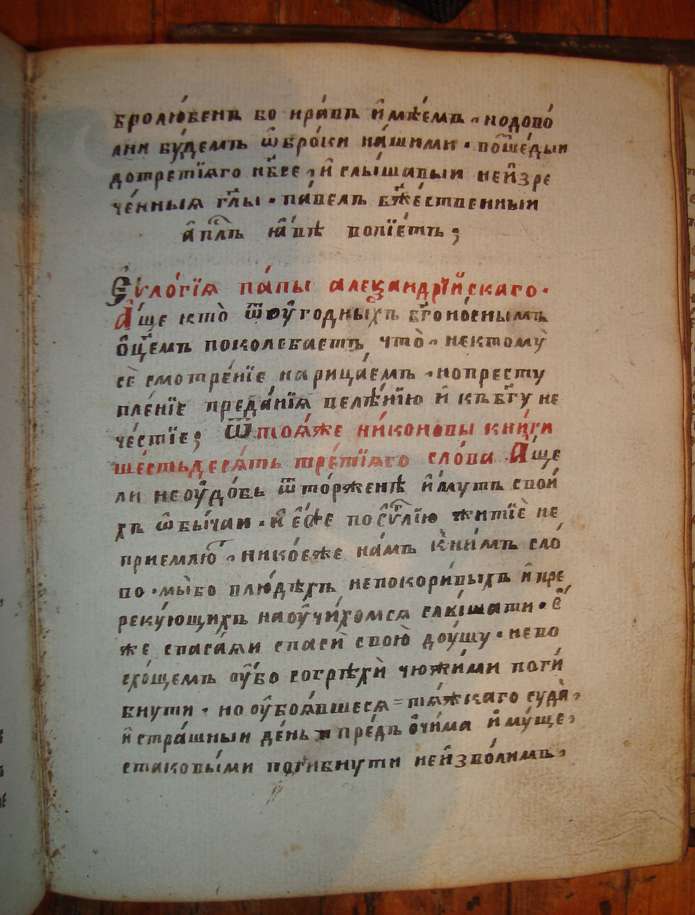 бролю́бенъ во нра́въ и҆мѣ́емъ, и дово́
лни бу́демъ ѡ҆бро́ки на́шими. поше́дыи
до третїѧго нб҃се, и҆ слы́шавыи неи҆зре
че́нныѧ гл҃ы. па́велъ бж҃е́ственныи
а҆пⷭ҇лъ ꙗ҆́вѣ вопїе́тъ;
Є҆ѵло́гїѧ па́пы алеѯандрі́йскаго.
А҆́ще кто̀ ѿ оу҆го́дныхъ бг҃оно́снымъ
ѻ҆ц҃е́мъ поколе́баетъ что̀, не ктому̀
сѐ смотре́нїе нарица́емъ, но престу
пле́нїе преда́нїѧ велѣ́нїю и҆ къ бг҃у не
че́стїе; Ѿ тоѧ́же ни́коновы кни́ги
ше́стьдесѧ́ть тре́тїѧго сло́ва А҆́ще
ли не оу҆до́бь ѿто́рженѣ и҆́мутъ свои́
хъ ѡ҆бы́чаи. и҆ є҆́же по є҆ѵⷢ҇лїю житїѐ не
прие́млюⷮ, нико́еже на́мъ к ни́мъ сло́
во. мы́ бо в лю́дѣхъ непокори́выхъ и҆ пре
реку́ющихъ наоу҆чи́хомсѧ слы́шати. є҆́
же спаса́ѧи спаси̑ свою̀ доу́шу. не во
схо́щемъ оу҆́бо согрѣхи̑ чю́жими поги́
бнути, но оу҆боѧ́вшесѧ тѧ́жкаго суда̀,
и҆ стра́шныи де́нь пре́дъ ѻ҆чи́ма и҆му́ще,
с таковы́ми поги́бнути не и҆зво́лимъ,